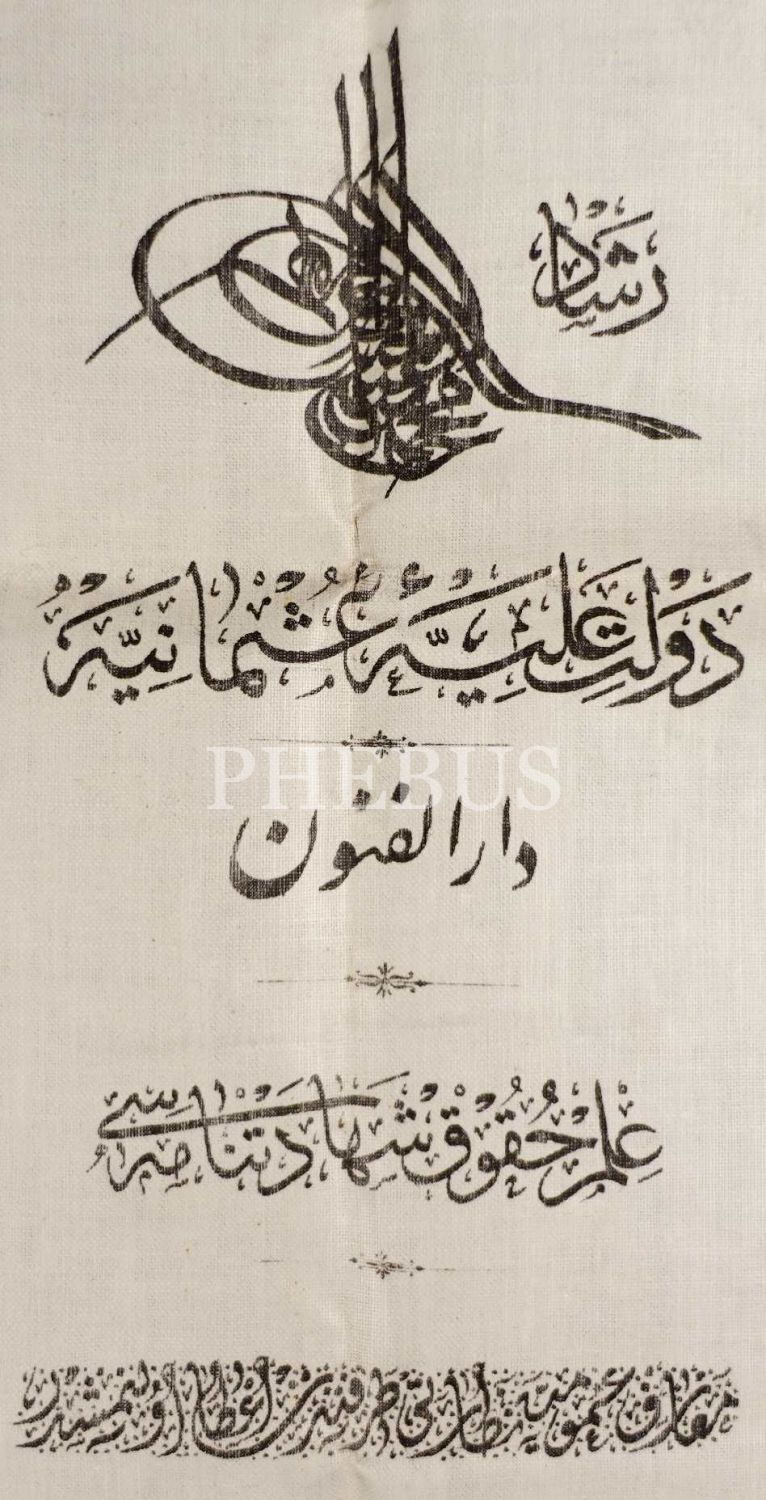 رشاد
دولت عليۀ عثمانيه
PHEBUS
دار الفنون
علم حقوق شهادتنامه سى
معارف عموميه نظارتى طرفندن اعطا اولنمشدر